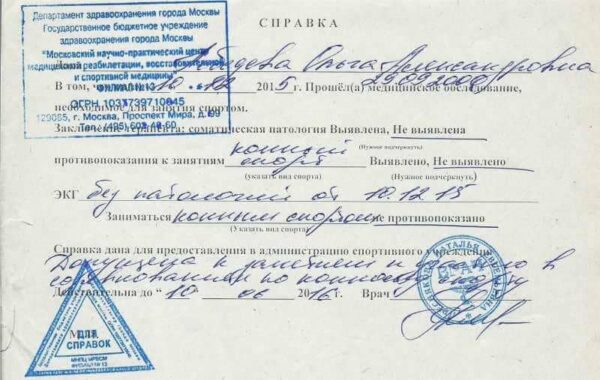 Департамент здравоохранения города Москвы
Государственное бюджетное учреждение
здравоохранения города Москвы
"Московский научно-практический центр
медицинской реабилитации, восстановительной
и спортивной медицины"
ФИЛИАЛ N 13
ОГРН 1037739710845
129085, г. Москва, Проспект Мира, д.
Тел. (495)
СПРАВКА
Ольга Александровна
29.09.2000
В том, что 10 12 2015 г. Прошёл(а) медицинское обследование,
необходимое для занятия спортом.
Заключение терапевта: соматическая патология Выявлена, Не выявлена
(Нужное подчеркнуть)
противопоказания к занятиям конный спорт Выявлено, Не выявлено
(указать вид спорта) (Нужное подчеркнуть)
ЭКГ без патологий от 10.12.15
Заниматься конным спортом не противопоказано
(Указать вид спорта)
Справка дана для предоставления в администрацию спортивного учреждения
Допущена к занятиям и в
соревнованиям по конному спорту
Действительна до " 10 06 2016 г. Врач
НАТАЛЬЯ
ВРАЧ
М.П.
ДЛЯ
СПРАВОК